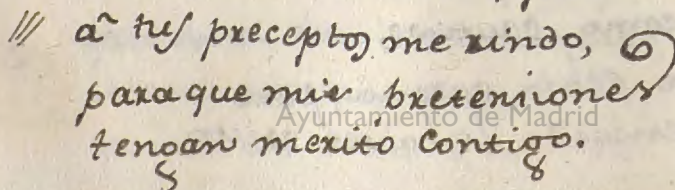 /// a tus preceptos me rindo,
para que mis pretensiones
Ayuntamiento de Madrid
tengan merito contigo.